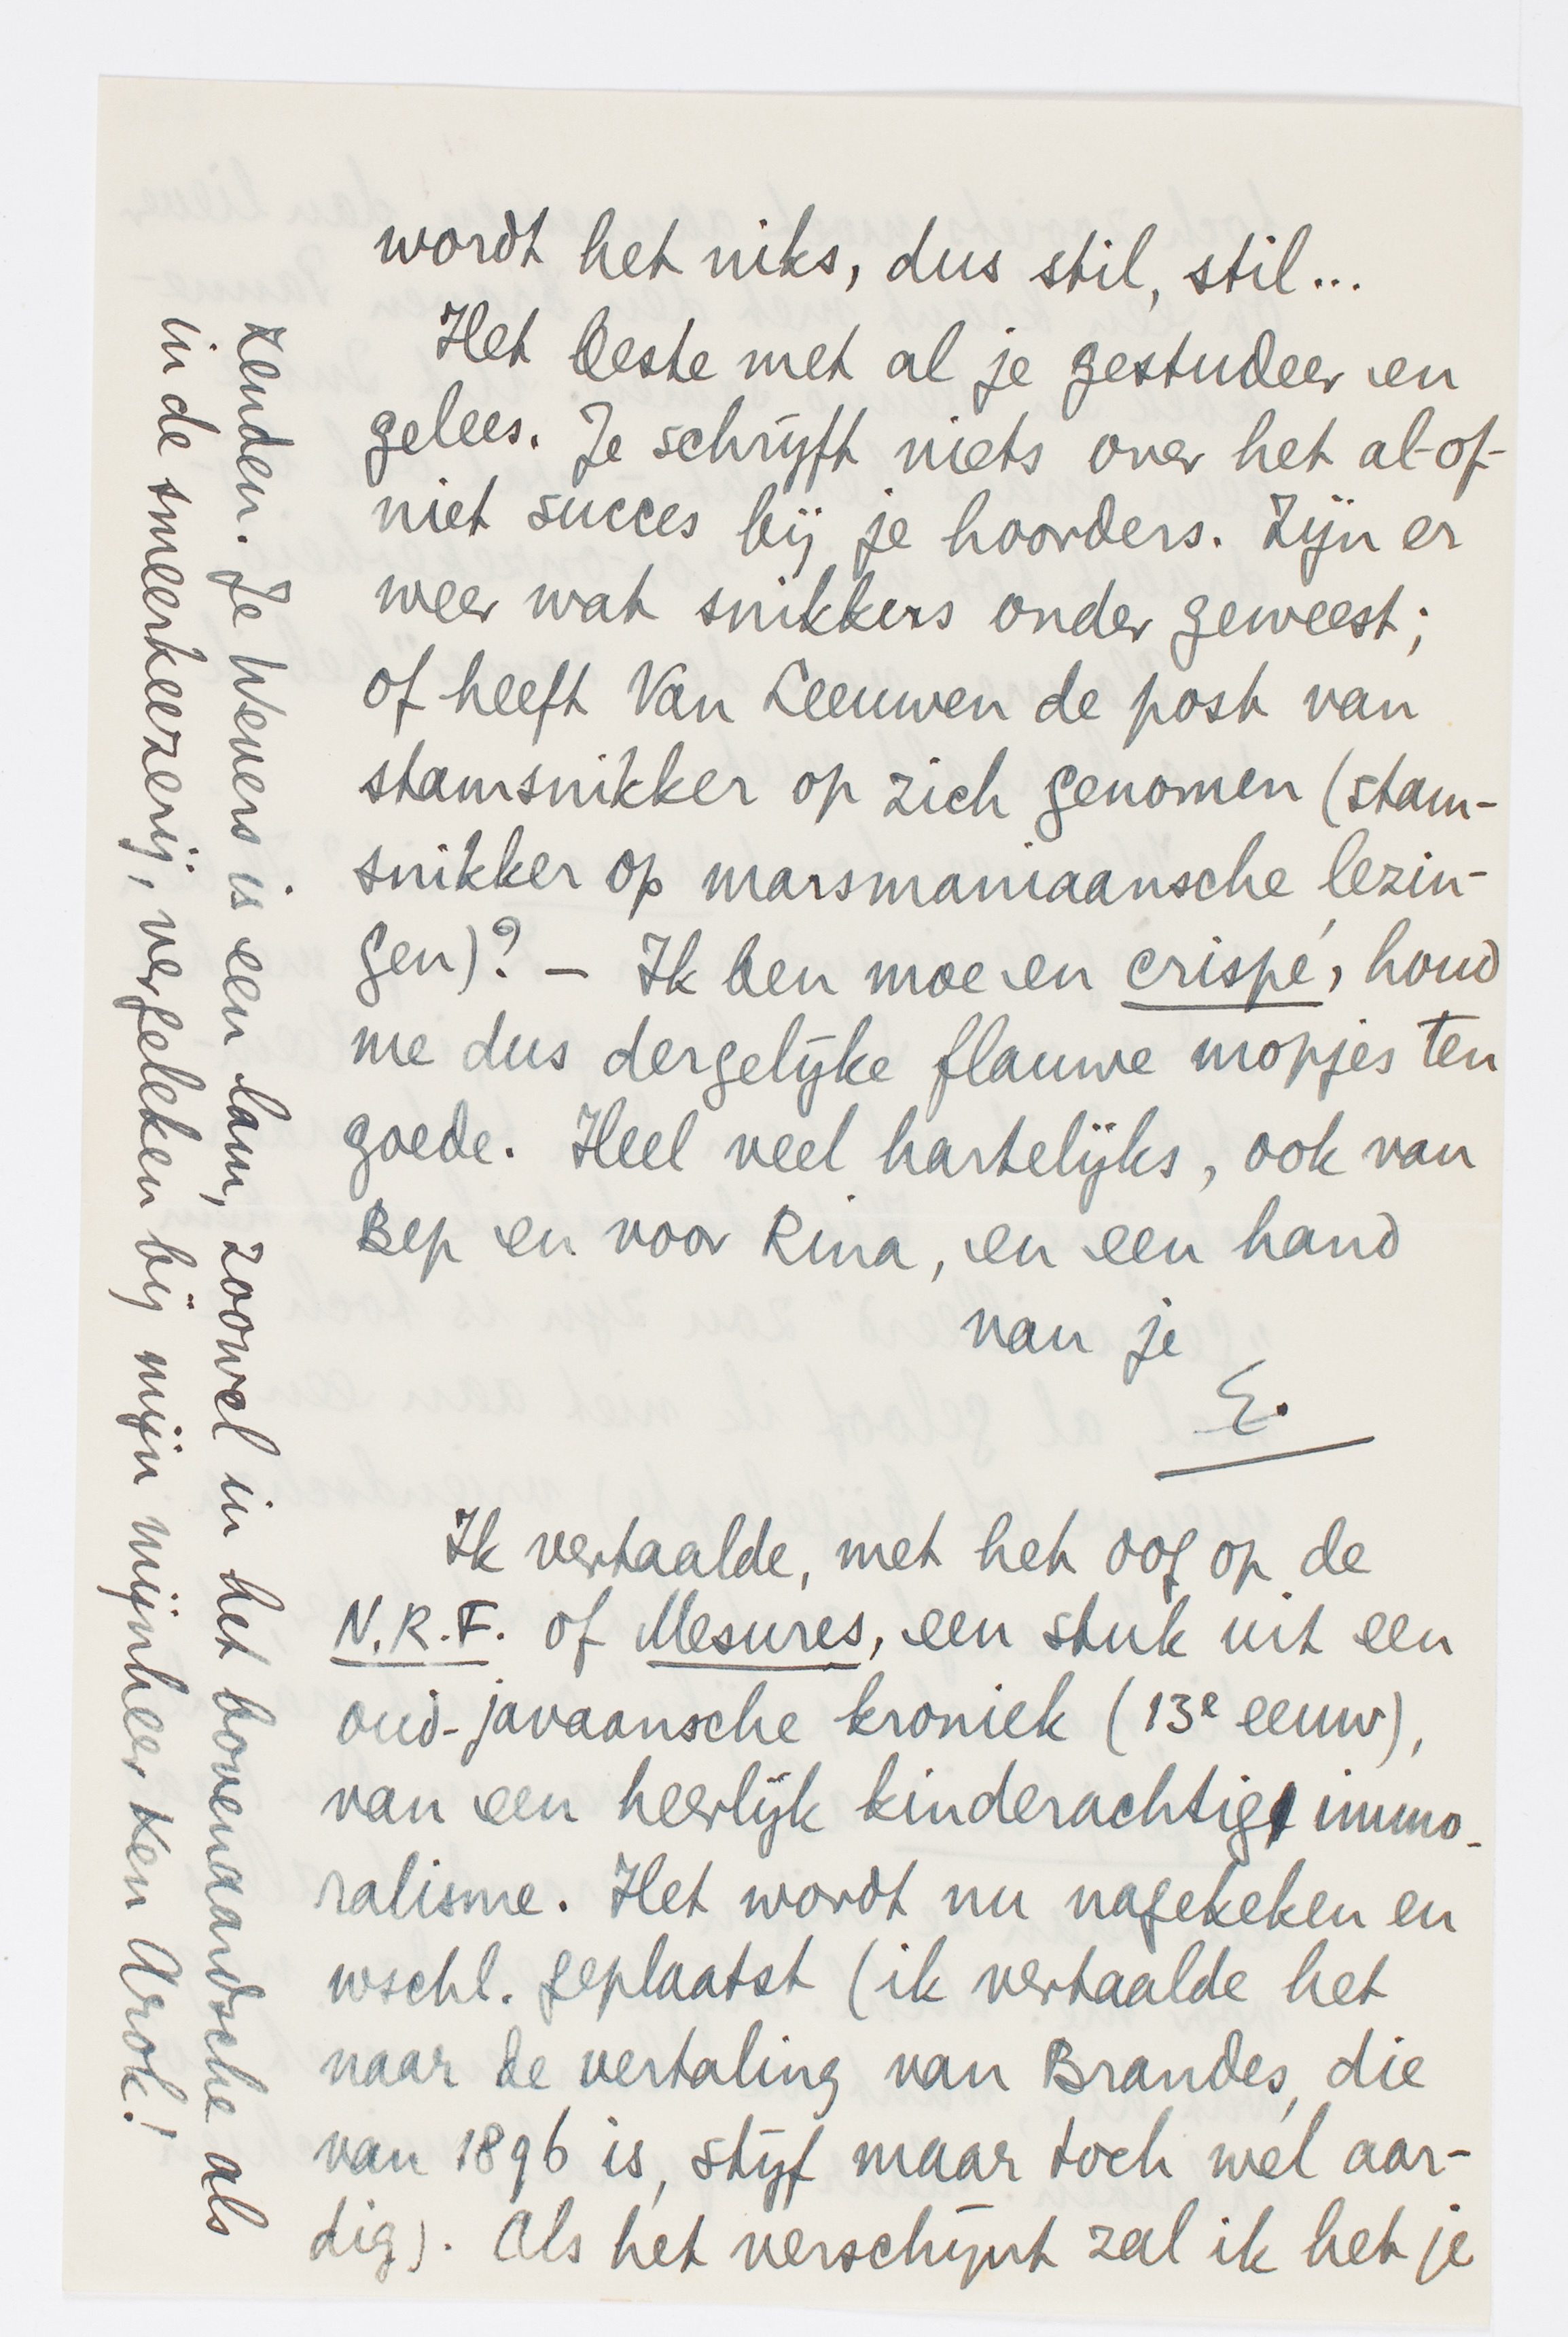 wordt het niks, dus stil, stil...
Het beste met al je gestudeer en
gelees. Je schrijft niets over het al-of-
niet succes bij je hoorders. Zijn er
weer wat snikkers onder geweest;
of heeft Van Leeuwen de post van
stamsnikker op zich genomen (stam-
snikker op marsmaniaansche lezin-
gen)? – Ik ben moe en crispé, houd
me dus dergelijke flauwe mopjes ten
goede. Heel veel hartelijks, ook van
Bep en voor Rina, en een hand
van je
E.
Ik vertaalde, met het oog op de
N.R.F. of Mesures, een stuk uit een
oud-javaansche kroniek (13e eeuw),
van een heerlijk kinderachtig immo-
ralisme. Het wordt nu nagekeken en
wschl. geplaatst (ik vertaalde het
naar de vertaling van Brandes, die
van 1896 is, stijf maar toch wel aar-
dig). Als het verschijnt zal ik het je
zenden. Je Wevers is een lam, zoowel in het bovenaardsche als
in de smeerkeezerij, vergeleken bij mijn mijnheer Ken Arok!